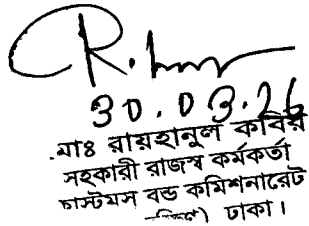 30.03.26
মোঃ রায়হানুল কবির
সহকারী রাজস্ব কর্মকর্তা
কাস্টমস বন্ড কমিশনারেট
ঢাকা।